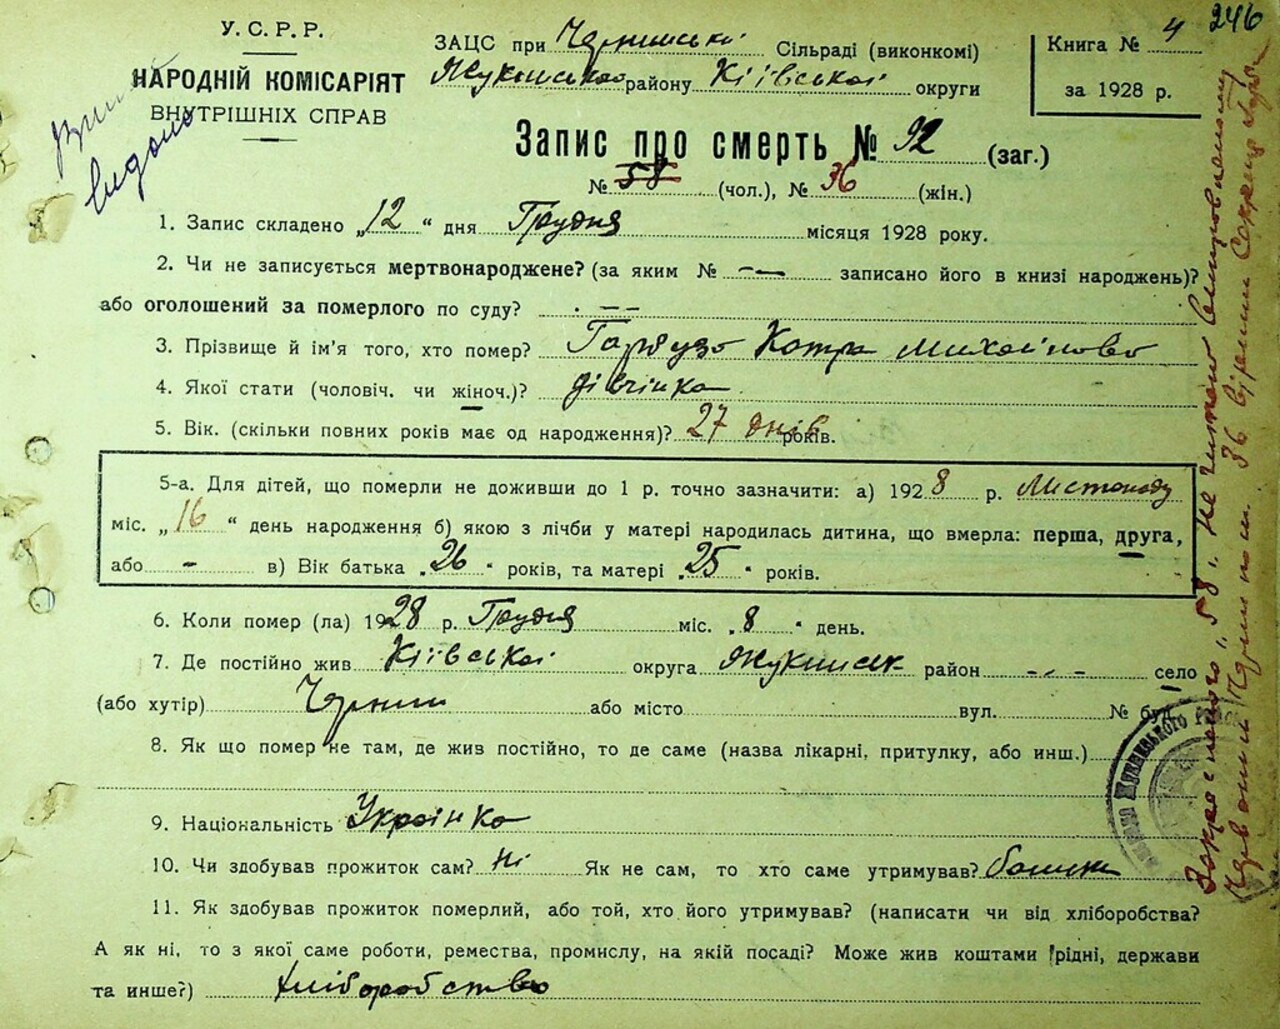 246
У. С. Р. Р.
НАРОДНІЙ КОМІСАРІЯТ
ВНУТРІШНІХ СПРАВ
видано
ЗАЦС при Чернинські Сільраді (виконкомі)
району Київської округи
Книга № 4
за 1928 р.
Запис про смерть № 92 (заг.)
№ 58 (чол.), № 36 (жін.)
1. Запис складено „12“ дня Грудня місяця 1928 року.
2. Чи не записується мертвонароджене? (за яким № — записано його в книзі народжень)?
або оголошений за померлого по суду? — —
3. Прізвище й ім'я того, хто помер? Михайлово
4. Якої стати (чоловіч. чи жіноч.)? дівчінка
5. Вік. (скільки повних років має од народження)? 27 днів років.
5-а. Для дітей, що померли не доживши до 1 р. точно зазначити: а) 1928 р. Листопаду
міс. „16“ день народження б) якою з лічби у матері народилась дитина, що вмерла: перша, друга,
або - в) Вік батька „26“ років, та матері „25“ років.
6. Коли помер (ла) 1928 р. Грудня міс. „8“ день.
7. Де постійно жив Київської округа район - - - село
(або хутір) Чернин або місто вул. № буд.
8. Як що помер не там, де жив постійно, то де саме (назва лікарні, притулку, або инш.)
9. Національність Українка
10. Чи здобував прожиток сам? Ні Як не сам, то хто саме утримував? батьки
11. Як здобував прожиток померлий, або той, хто його утримував? (написати чи від хліборобства?
А як ні, то з якої саме роботи, ремества, промислу, на якій посаді? Може жив коштами рідні, держави
та инше?) хліборобство